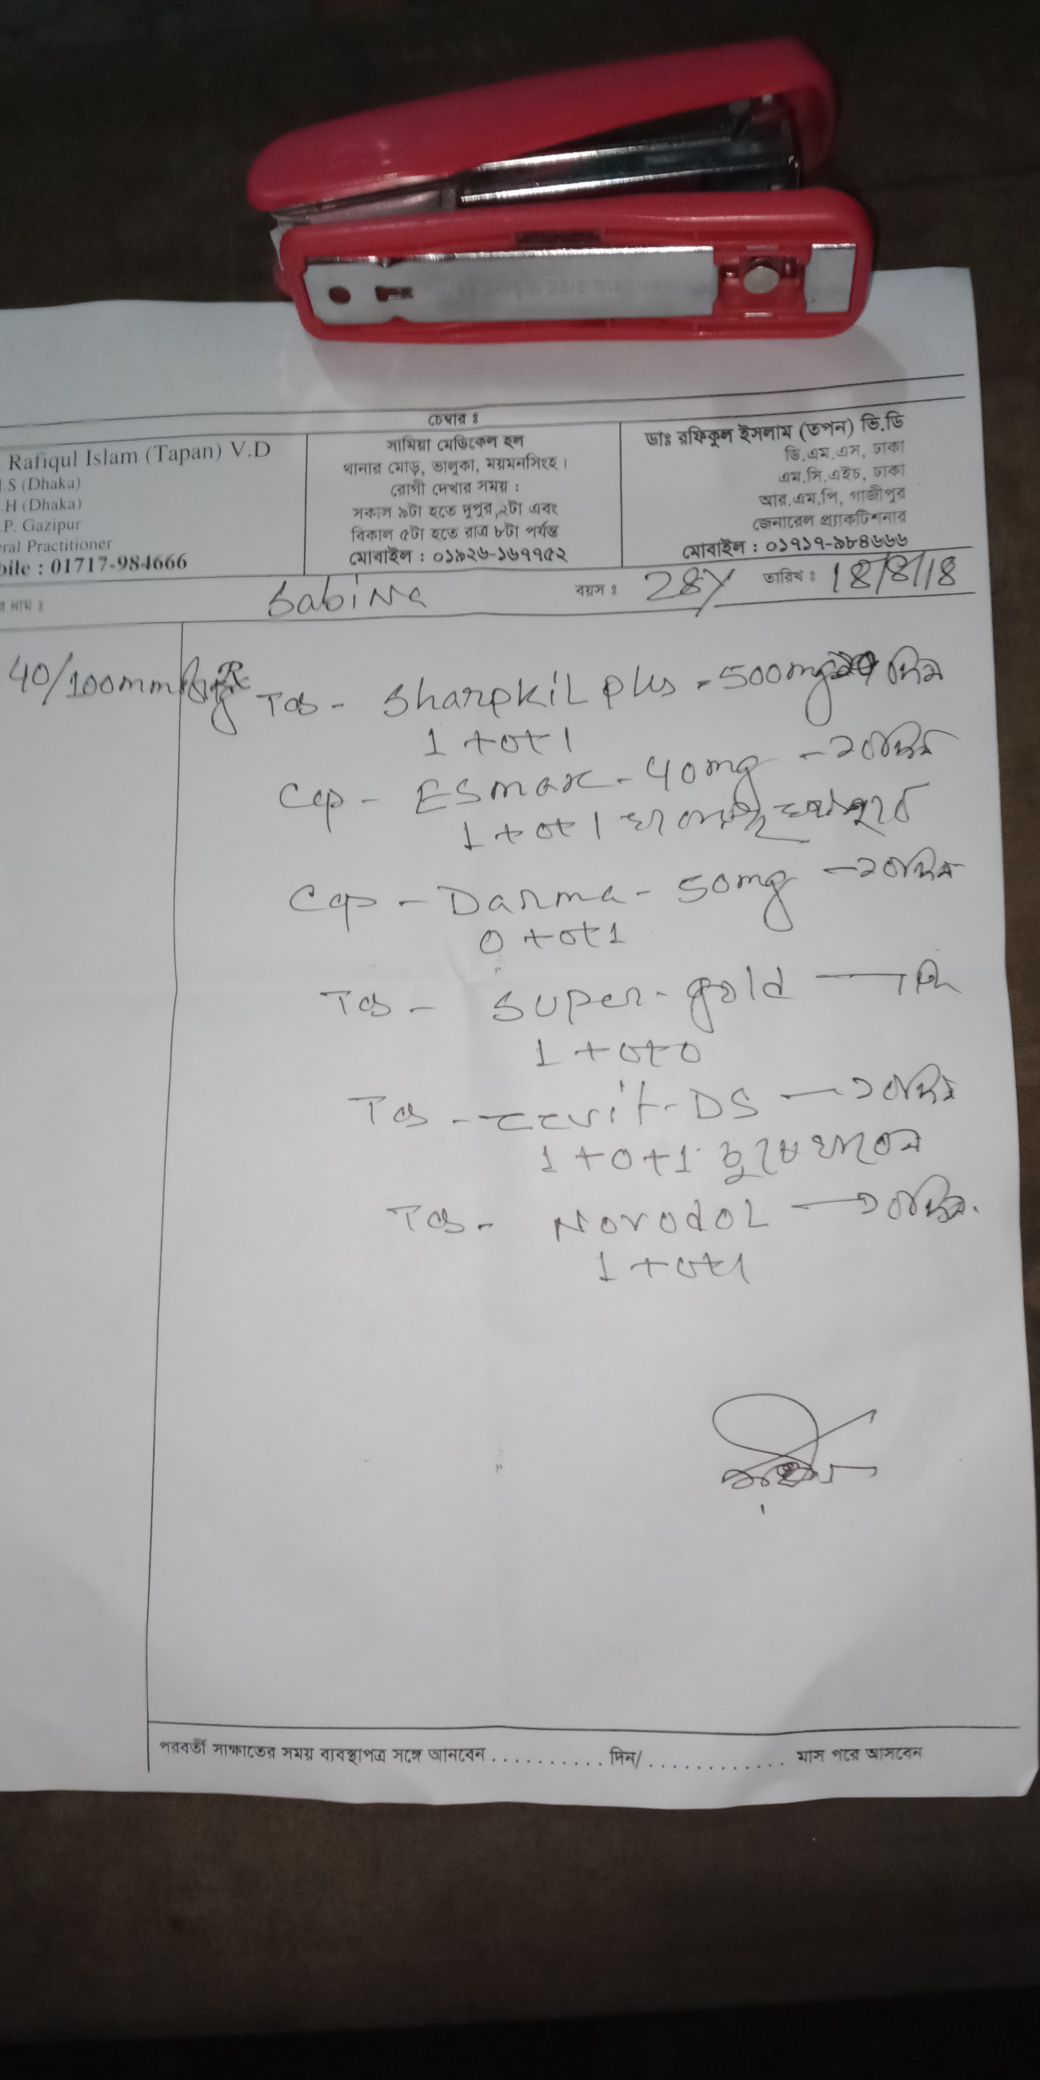 চেম্বার ঃ
Rafiqul Islam (Tapan) V.D
.S (Dhaka)
.H (Dhaka)
.P. Gazipur
ral Practitioner
bile : 01717-984666
সামিয়া মেডিকেল হল
থানার মোড়, ভালুকা, ময়মনসিংহ।
রোগী দেখার সময় :
সকাল ৯টা হতে দুপুর ২টা এবং
বিকাল ৫টা হতে রাত্র ৮টা পর্যন্ত
মোবাইল : ০১৯২৬-১৬৭৭৫২
ডাঃ রফিকুল ইসলাম (তপন) ভি.ডি
ডি.এম.এস, ঢাকা
এম.সি.এইচ, ঢাকা
আর.এম.পি, গাজীপুর
জেনারেল প্র্যাকটিশনার
মোবাইল : ০১৭১৭-৯৮৪৬৬৬
র নাম ঃ Sabina বয়স ঃ 28y তারিখ ঃ 18/8/18
40/100mmHg
Tab - Sharpkil plus - 500mg দিন
1+0+1
Cap - ESmax - 40mg - ২০দিন
1+0+1
Cap - Darma - 50mg - ২০দিন
0+0+1
Tab - Super-gold
1+0+0
Tab - ceevit-DS - ২০দিন
1+0+1 চুষে খাবেন
Tab - Norodol - ১০দিন.
1+0+1
পরবর্তী সাক্ষাতের সময় ব্যবস্থাপত্র সঙ্গে আনবেন ........... দিন/ ............. মাস পরে আসবেন